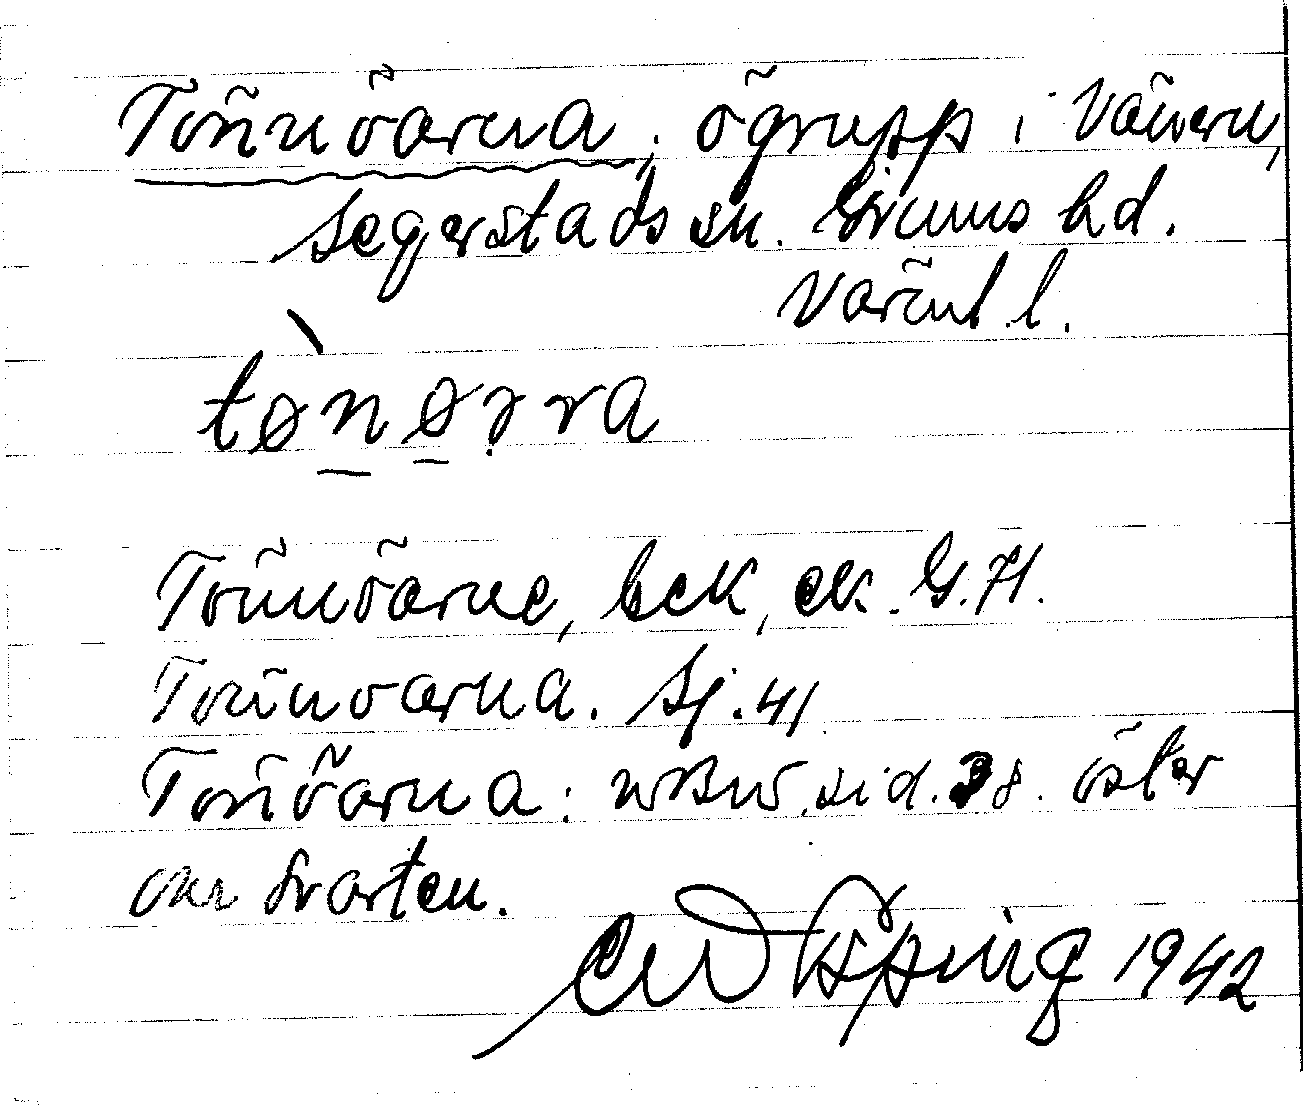 Tönnöarna; ögrupp i Vänern,
Segerstads sn. Grums hd.
Värml. l.
tònørra
Tönnöarne, bek, ek. G.H.
Tönnöarna. Sj. 41
Tönöarna: sid. 38. öster
om Svarten.
1942